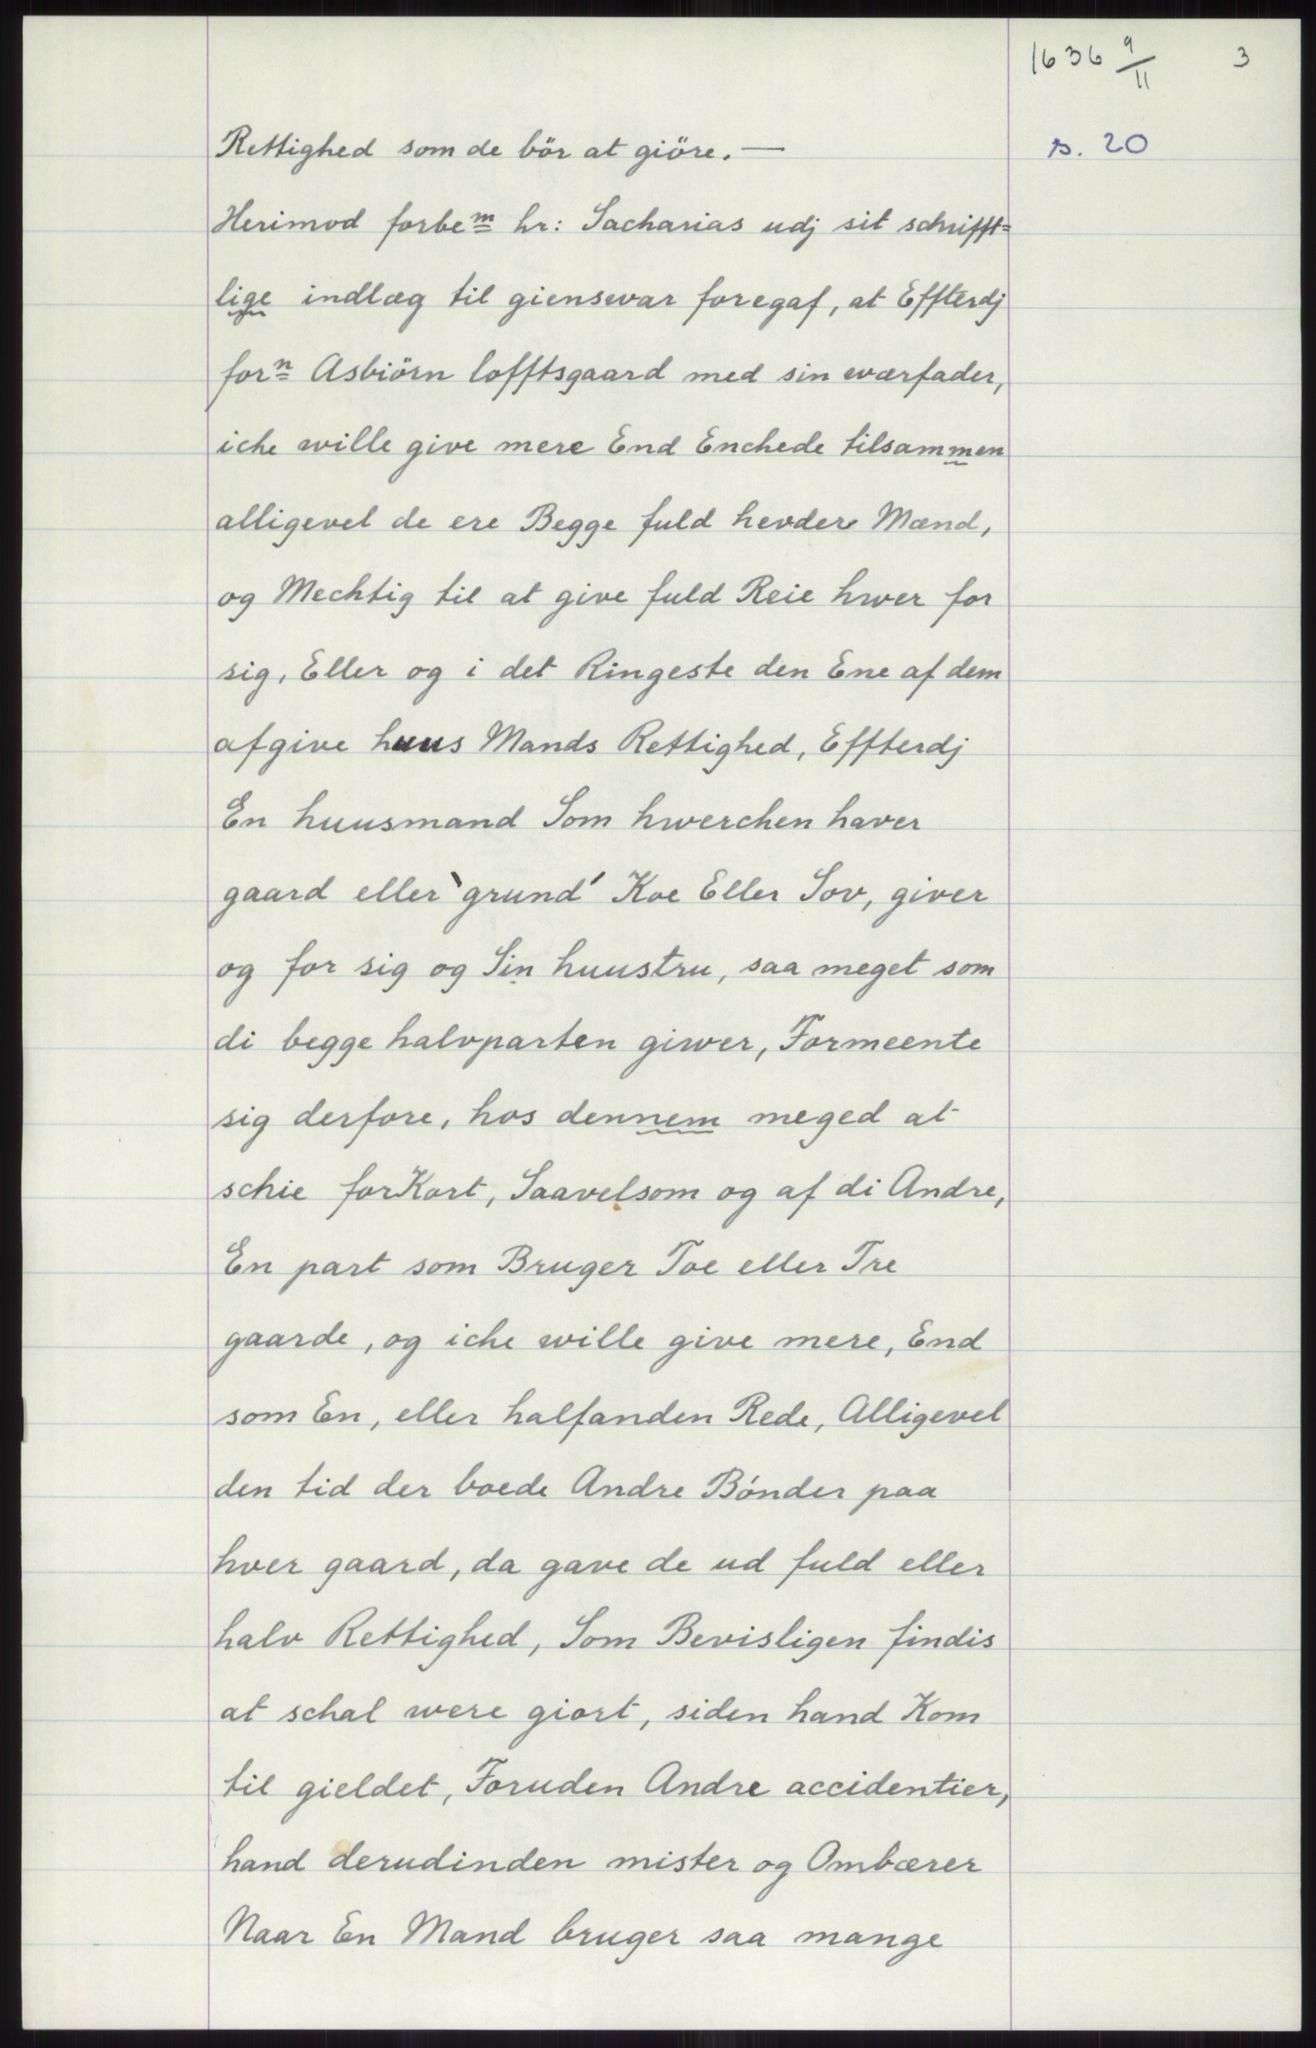 1636 9/11 3
Rettighed som de bör at giöre. —
s. 20
Herimod forbem hr: Sacharias udj sit schrifft=
lige indlæg til giensvar foregaf, at Effterdj
forn Asbiörn lofftsgaard med sin værfader,
iche wille give mere End Enchede tilsammen
alligevel de ere Begge fuld hevder Mænd,
og Mechtig til at give fuld Reie hwer for
sig, Eller og i det Ringeste den Ene af dem
afgive huus Mands Rettighed, Effterdj
En huusmand Som hwerchen haver
gaard eller `grund´ Koe Eller Sov, giver
og for sig og Sin huustru, saa meget som
di begge halvparten giwer, Formeente
sig derfore, hos dennem meged at
schie forKort, Saavelsom og af di Andre,
En part som Bruger Toe eller Tre
gaarde, og iche wille give mere, End
som En, eller halfanden Rede, Alligevel
den tid der boede Andre Bónder paa
hver gaard, da gave de ud fuld eller
halv Rettighed, Som Bevisligen findis
at schal were giort, siden hand Kom
til gieldet, Foruden Andre accidentier,
hand derudinden mister og Ombærer
Naar En Mand bruger saa mange